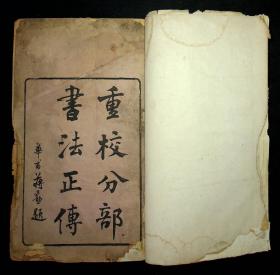 重校分部
書法正傳
華亭蔣勱題